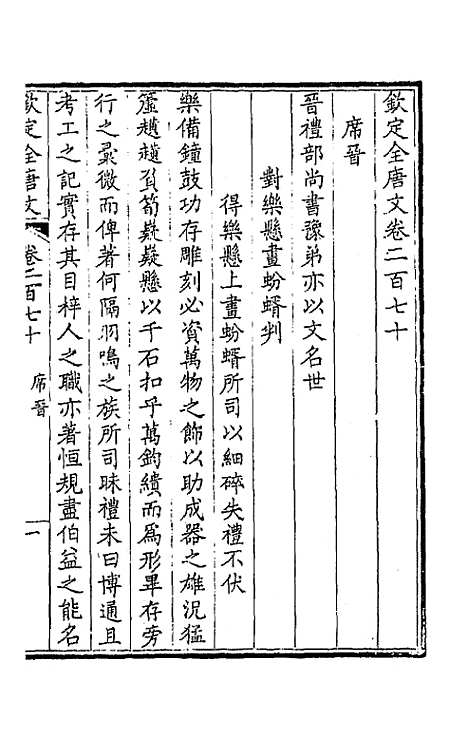 欽定全唐文卷二百七十
席晉
晉禮部尚書豫弟亦以文名世
對樂懸畫蚡蝑判
得樂懸上畫蚡蝑所司以細碎失禮不伏
樂備鐘鼓功存雕刻必資萬物之飾以助成器之雄況猛
簴趪趪負筍嶷嶷懸以千石扣乎萬鈞繢而爲形畢存旁
行之彙微而俾著何隔羽鳴之族所司昧禮未曰博通且
考工之記實存其目梓人之職亦著恒規畫伯益之能名
欽定全唐文 卷二百七十 席晉 一